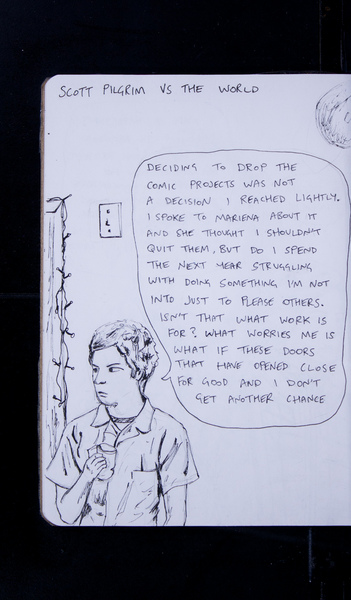 SCOTT PILGRIM VS THE WORLD
DECIDING TO DROP THE
COMIC PROJECTS WAS NOT
A DECISION I REACHED LIGHTLY.
I SPOKE TO MARIENA ABOUT IT
AND SHE THOUGHT I SHOULDN'T
QUIT THEM, BUT DO I SPEND
THE NEXT YEAR STRUGGLING
WITH DOING SOMETHING I'M NOT
INTO JUST TO PLEASE OTHERS.
ISN'T THAT WHAT WORK IS
FOR? WHAT WORRIES ME IS
WHAT IF THESE DOORS
THAT HAVE OPENED CLOSE
FOR GOOD AND I DON'T
GET ANOTHER CHANCE